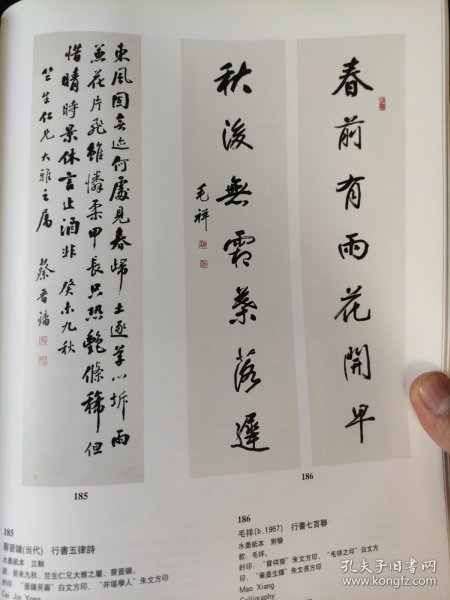 春前有雨花開早
秋後無霜葉落遲
毛祥
東風固無迹何處見春歸土逐草心坼雨
兼花片飛雖憐柔甲長只恐艷條稀但
惜晴時景休言止酒非 癸未九秋
竺生仁兄大雅之属 蔡晉鏞
185
186
185
蔡晉鏞(当代) 行書五律詩
水墨紙本 立軸
款：癸未九秋，竺生仁兄大雅之屬，蔡晉鏞。
長壽”白文方印，“井堪學人”朱文方印
Cai Jin Yong
186
毛祥(b.1967) 行書七言聯
水墨紙本 對聯
款：毛祥。
鈐印：“寶祥璽”朱文方印、“毛祥之印”白文方
印、“筆墨生輝”朱文長方印
Mao Xiang
Calligraphy
孔夫子旧书网